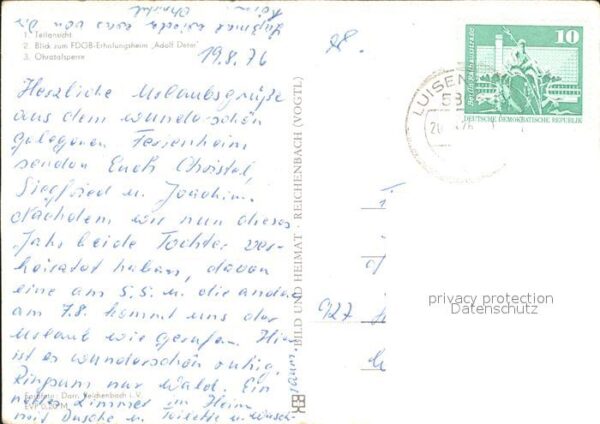 1 Teilansicht
2. Blick zum FDGB-Erholungsheim „Adolf Deter"
3. Ohratalsperre
19.8.76
Herzliche Urlaubsgrüße
aus dem wunderschön
gelegenen Ferienheim
senden Euch Christel,
Siegfried u. Joachim.
Nachdem wir nun dieses
Jahr beide Töchter ver-
heiratet haben, davon
eine am 5.5. u. die andere
am 7.8. kommt uns der
Urlaub wie gerufen. Hier
ist es wunderschön ruhig.
Ringsum nur Wald. Ein
Zimmer im Heim
mit Dusche u. Toilette u.
Reichenbach i. V.
EVP 0,20 M
BILD UND HEIMAT · REICHENBACH (VOGTL)
LUISEN
58
10
DEUTSCHE DEMOKRATISCHE REPUBLIK
927
privacy protection
Datenschutz